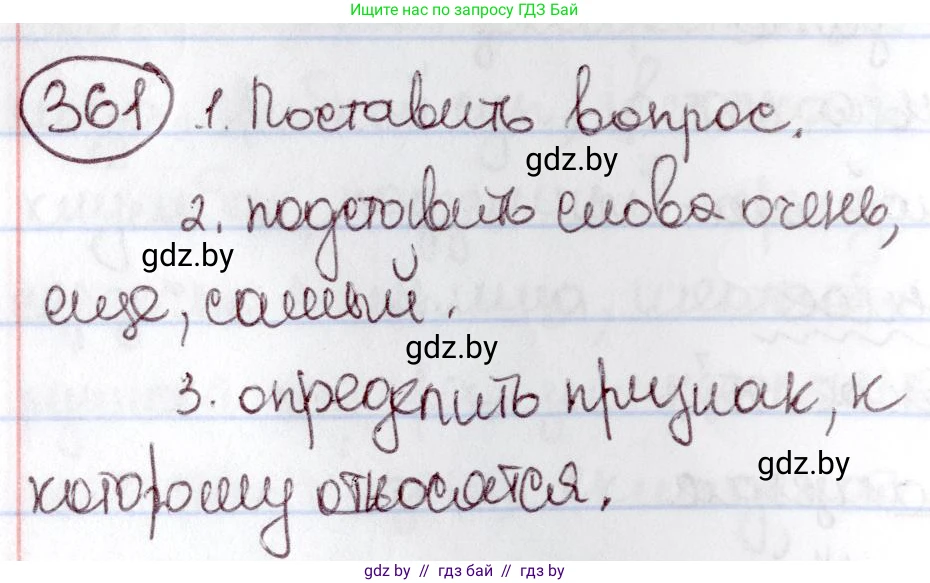 Ищите нас по запросу ГДЗ Бай
361 1. Поставить вопрос.
gdz.by
2. подставить слова очень,
gdz.by
еще, самый.
gdz.by
3. определить признак, к
gdz.by
которому относятся.
gdz.by // гдз бай // gdz.by